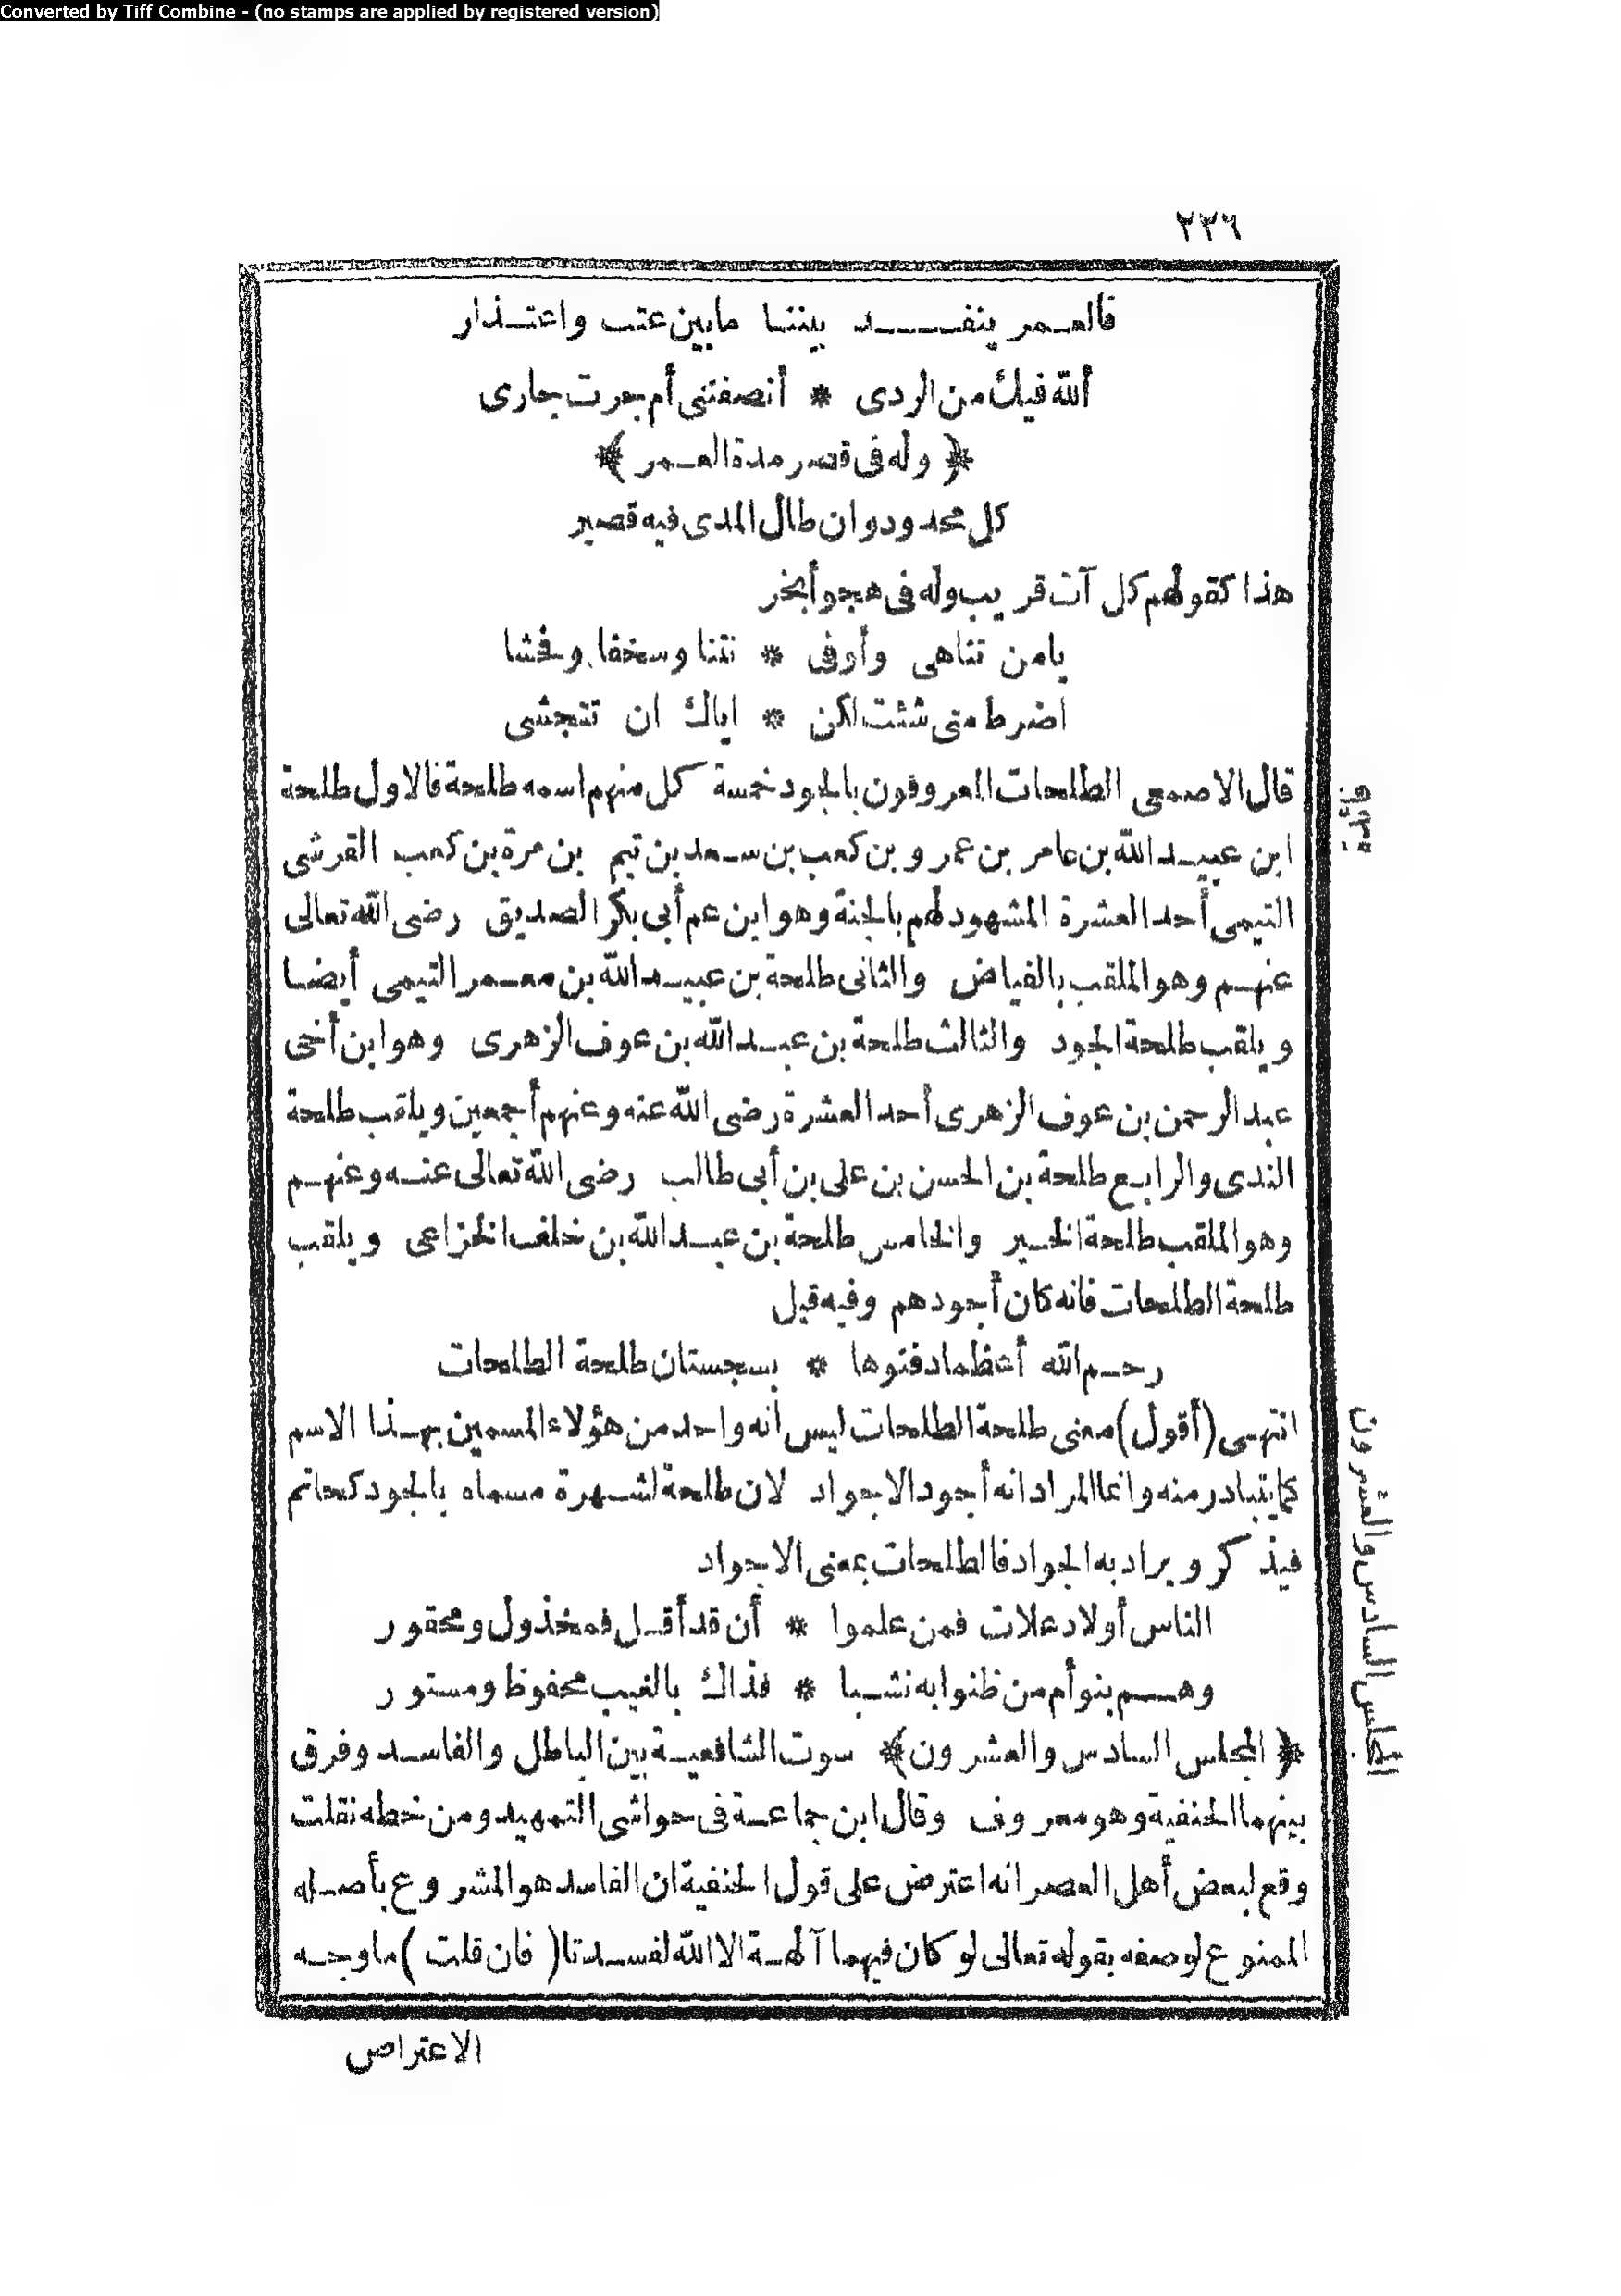 Converted by Tiff Combine - (no stamps are applied by registered version)
٢٣٦
فالعمر ينفد بيننا مابين عتب واعتذار
ألله فيك من الردى * أنصفتنى أم جرت جارى
﴿ وله فى قصر مدة العمر ﴾
كل محدود وان طال المدى فيه قصير
هذا كقولهم كل آت قريب وله فى هجو أبخر
يامن تناهى وأوفى * نتنا وسخفا وفحشا
اضرط متى شئت لكن * اياك ان تتجشى
قال الاصمعى الطلحات المعروفون بالجود خمسة كل منهم اسمه طلحة فالاول طلحة
ابن عبيد الله بن عامر بن عمرو بن كعب بن سعد بن تيم بن مرة بن كعب القرشى
التيمى أحد العشرة المشهود لهم بالجنة وهو ابن عم أبى بكر الصديق رضى الله تعالى
عنهم وهو الملقب بالفياض والثانى طلحة بن عبيد الله بن معمر التيمى أيضا
ويلقب طلحة الجود والثالث طلحة بن عبد الله بن عوف الزهرى وهو ابن أخى
عبد الرحمن بن عوف الزهرى أحد العشرة رضى الله عنه وعنهم أجمعين ويلقب طلحة
الندى والرابع طلحة بن الحسن بن على بن أبى طالب رضى الله تعالى عنه وعنهم
وهو الملقب طلحة الخير والخامس طلحة بن عبد الله بن خلف الخزاعى ويلقب
طلحة الطلحات فانه كان أجودهم وفيه قيل
رحم الله أعظما دفنوها * بسجستان طلحة الطلحات
انتهى (أقول) معنى طلحة الطلحات ليس انه واحد من هؤلاء المسمين بهذا الاسم
كما يتبادر منه وانما المراد انه أجود الاجواد لان طلحة لشهرة مسماه بالجود كحاتم
فيذكر ويراد به الجواد فالطلحات بمعنى الاجواد
الناس أولاد علات فمن علموا * أن قد أقل فمخذول ومحقور
وهم بنو أم من ظنوا به نشبا * فذاك بالغيب محفوظ ومستور
﴿ المجلس السادس والعشرون ﴾ سوت الشافعية بين الباطل والفاسد وفرق
بينهما الحنفية وهو معروف وقال ابن جماعة فى حواشى التمهيد ومن خطه نقلت
وقع لبعض أهل العصر انه اعترض على قول الحنفية ان الفاسد هو المشروع بأصله
الممنوع لوصفه بقوله تعالى لو كان فيهما آلهة الا الله لفسدتا (فان قلت) ماوجه
الاعتراض
المجلس السادس والعشرون